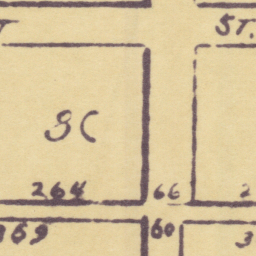 T ST.
SC
264 66 2
169 60 3